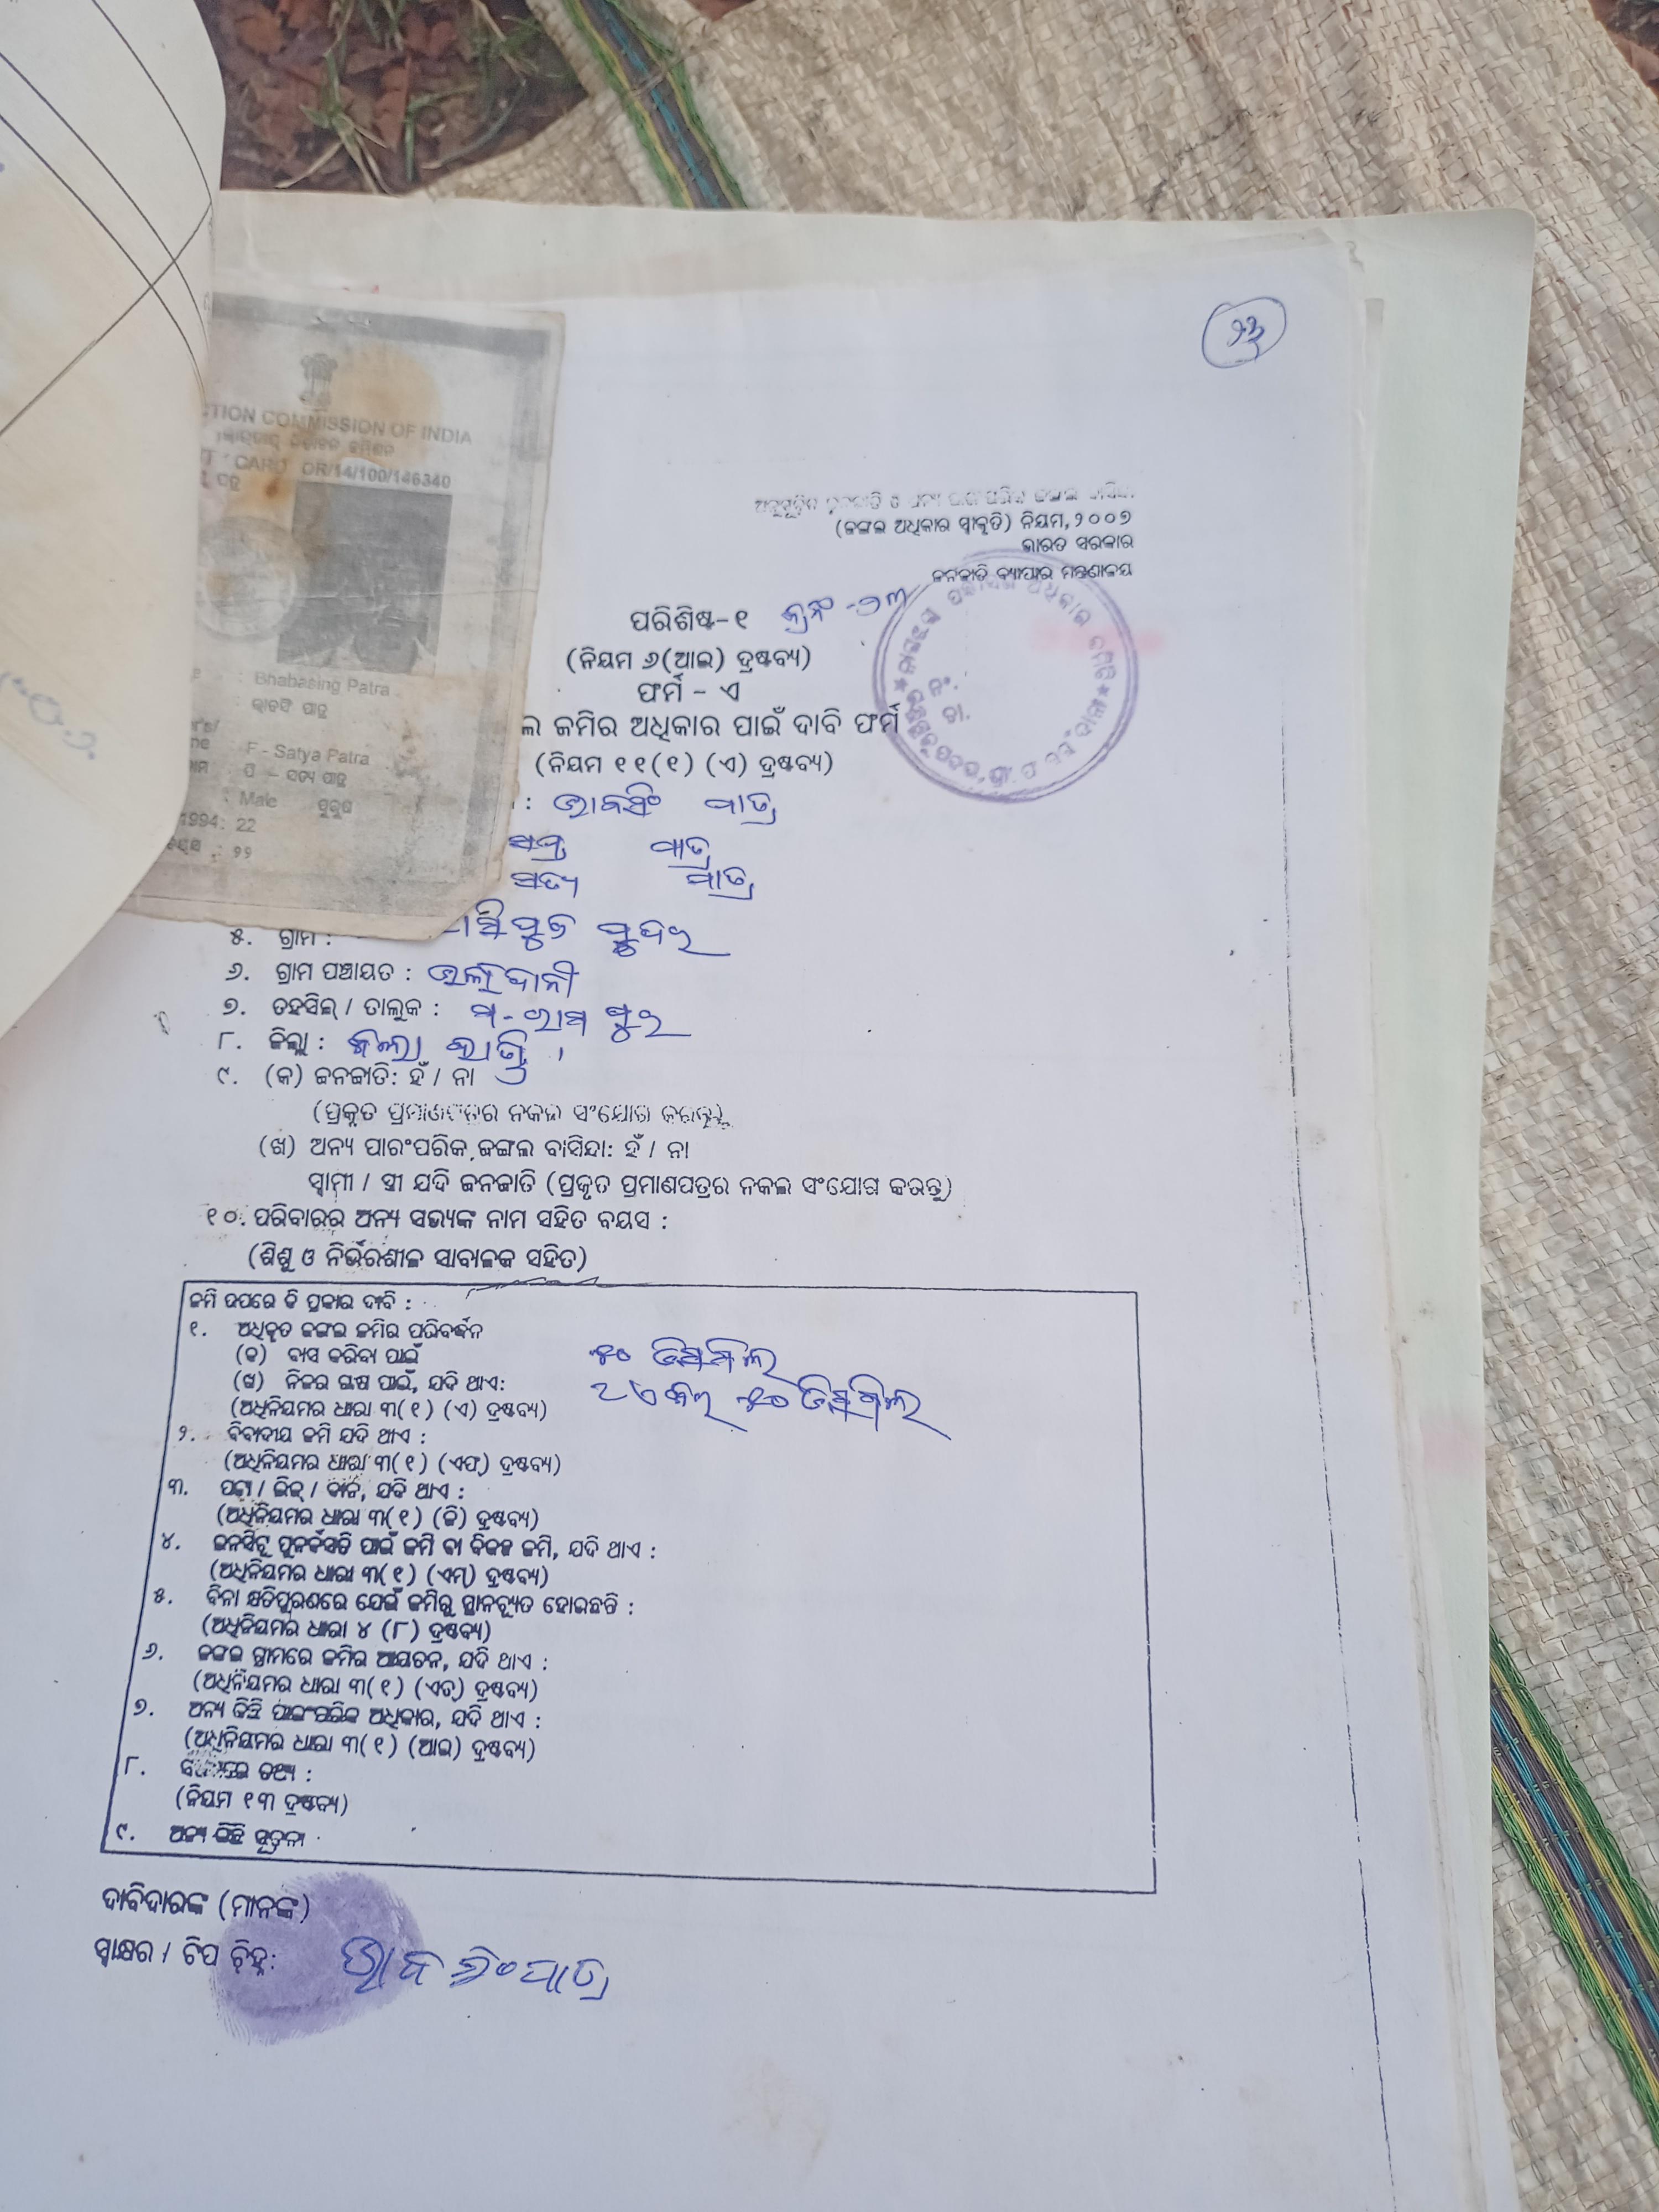 ୨୩
CTION COMMISSION OF INDIA
CARD OR/14/100/146340
: Bhabasing Patra
F - Satya Patra
ପି - ସତ୍ୟ ପାତ୍ର
: Male ପୁରୁଷ
1994: 22
: ୨୨
(ଜଙ୍ଗଲ ଅଧିକାର ସ୍ୱୀକୃତି) ନିୟମ, ୨୦୦୭
ଭାରତ ସରକାର
ଜନଜାତି ବ୍ୟାପାର ମନ୍ତ୍ରଣାଳୟ
ପରିଶିଷ୍ଟ-୧
(ନିୟମ ୬(ଆଇ) ଦ୍ରଷ୍ଟବ୍ୟ)
ଫର୍ମ - ଏ
ଲ ଜମିର ଅଧିକାର ପାଇଁ ଦାବି ଫର୍ମ
(ନିୟମ ୧୧(୧) (ଏ) ଦ୍ରଷ୍ଟବ୍ୟ)
: ଭାବସିଂ ପାତ୍ର
ପାତ୍ର
ସତ୍ୟ ପାତ୍ର
୫. ଗ୍ରାମ :
୬. ଗ୍ରାମ ପଞ୍ଚାୟତ :
୭. ତହସିଲ୍ / ତାଲୁକ : ମ. ରାମପୁର
୮. ଜିଲ୍ଲା :
୯. (କ) ଜନଜାତି: ହଁ / ନା
(ପ୍ରକୃତ ପ୍ରମାଣପତ୍ରର ନକଲ ସଂଯୋଗ କରନ୍ତୁ)
(ଖ) ଅନ୍ୟ ପାରଂପରିକ ଜଙ୍ଗଲ ବାସିନ୍ଦା: ହଁ / ନା
ସ୍ୱାମୀ / ସ୍ତ୍ରୀ ଯଦି ଜନଜାତି (ପ୍ରକୃତ ପ୍ରମାଣପତ୍ରର ନକଲ ସଂଯୋଗ କରନ୍ତୁ)
୧୦. ପରିବାରର ଅନ୍ୟ ସଭ୍ୟଙ୍କ ନାମ ସହିତ ବୟସ :
(ଶିଶୁ ଓ ନିର୍ଭରଶୀଳ ସାବାଳକ ସହିତ)
ଜମି ଉପରେ କି ପ୍ରକାର ଦାବି :
୧. ଅଧିକୃତ ଜଙ୍ଗଲ ଜମିର ପରିବର୍ଦ୍ଧନ
(କ) ବାସ କରିବା ପାଇଁ ୫୦ ଡିସମିଲ
(ଖ) ନିଜର ଚାଷ ପାଇଁ, ଯଦି ଥାଏ: ୨ ଏକର ୫୦ ଡିସମିଲ
(ଅଧିନିୟମର ଧାରା ୩(୧) (ଏ) ଦ୍ରଷ୍ଟବ୍ୟ)
୨. ବିବାଦୀୟ ଜମି ଯଦି ଥାଏ :
(ଅଧିନିୟମର ଧାରା ୩(୧) (ଏଫ୍) ଦ୍ରଷ୍ଟବ୍ୟ)
୩. ପଟ୍ଟା / ଲିଜ୍ / ଦାନ, ଯଦି ଥାଏ :
(ଅଧିନିୟମର ଧାରା ୩(୧) (ଜି) ଦ୍ରଷ୍ଟବ୍ୟ)
୪. ଇନସିଟୁ ପୁନର୍ବସତି ପାଇଁ ଜମି ବା ବିକଳ୍ପ ଜମି, ଯଦି ଥାଏ :
(ଅଧିନିୟମର ଧାରା ୩(୧) (ଏମ୍) ଦ୍ରଷ୍ଟବ୍ୟ)
୫. ବିନା କ୍ଷତିପୂରଣରେ ଯେଉଁ ଜମିରୁ ସ୍ଥାନଚ୍ୟୁତ ହୋଇଛନ୍ତି :
(ଅଧିନିୟମର ଧାରା ୪ (୮) ଦ୍ରଷ୍ଟବ୍ୟ)
୬. ଜଙ୍ଗଲ ଗ୍ରାମରେ ଜମିର ଆୟତନ, ଯଦି ଥାଏ :
(ଅଧିନିୟମର ଧାରା ୩(୧) (ଏଚ୍) ଦ୍ରଷ୍ଟବ୍ୟ)
୭. ଅନ୍ୟ କିଛି ପାରଂପରିକ ଅଧିକାର, ଯଦି ଥାଏ :
(ଅଧିନିୟମର ଧାରା ୩(୧) (ଆଇ) ଦ୍ରଷ୍ଟବ୍ୟ)
୮. ତଥ୍ୟ :
(ନିୟମ ୧୩ ଦ୍ରଷ୍ଟବ୍ୟ)
୯. ଅନ୍ୟ କିଛି ସୂଚନା
ଦାବିଦାରଙ୍କ (ମାନଙ୍କ)
ସ୍ୱାକ୍ଷର / ଟିପ ଚିହ୍ନ: ଭାବସିଂ ପାତ୍ର